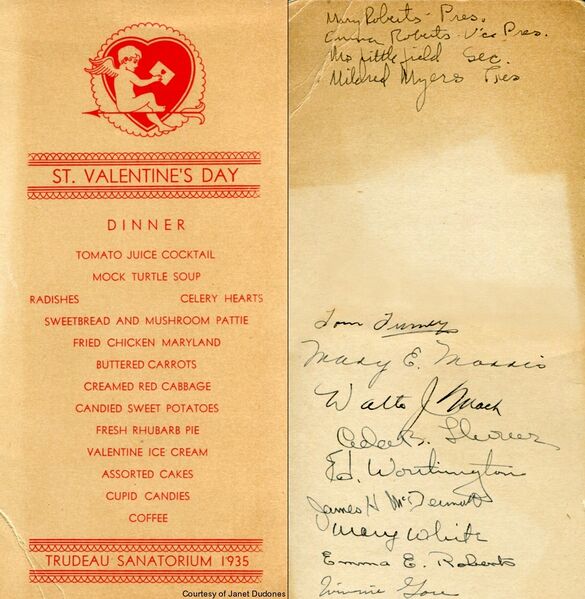 ST. VALENTINE'S DAY
DINNER
TOMATO JUICE COCKTAIL
MOCK TURTLE SOUP
RADISHES CELERY HEARTS
SWEETBREAD AND MUSHROOM PATTIE
FRIED CHICKEN MARYLAND
BUTTERED CARROTS
CREAMED RED CABBAGE
CANDIED SWEET POTATOES
FRESH RHUBARB PIE
VALENTINE ICE CREAM
ASSORTED CAKES
CUPID CANDIES
COFFEE
TRUDEAU SANATORIUM 1935
Courtesy of Janet Dudones
Mary Roberts - Pres.
Emma Roberts - Vice Pres.
Sec.
Mildred Myers Tres
Tom
Mary E. Morris
J. Mack
Ed. Worthington
James H McDermott
Mary White
Emma E. Roberts